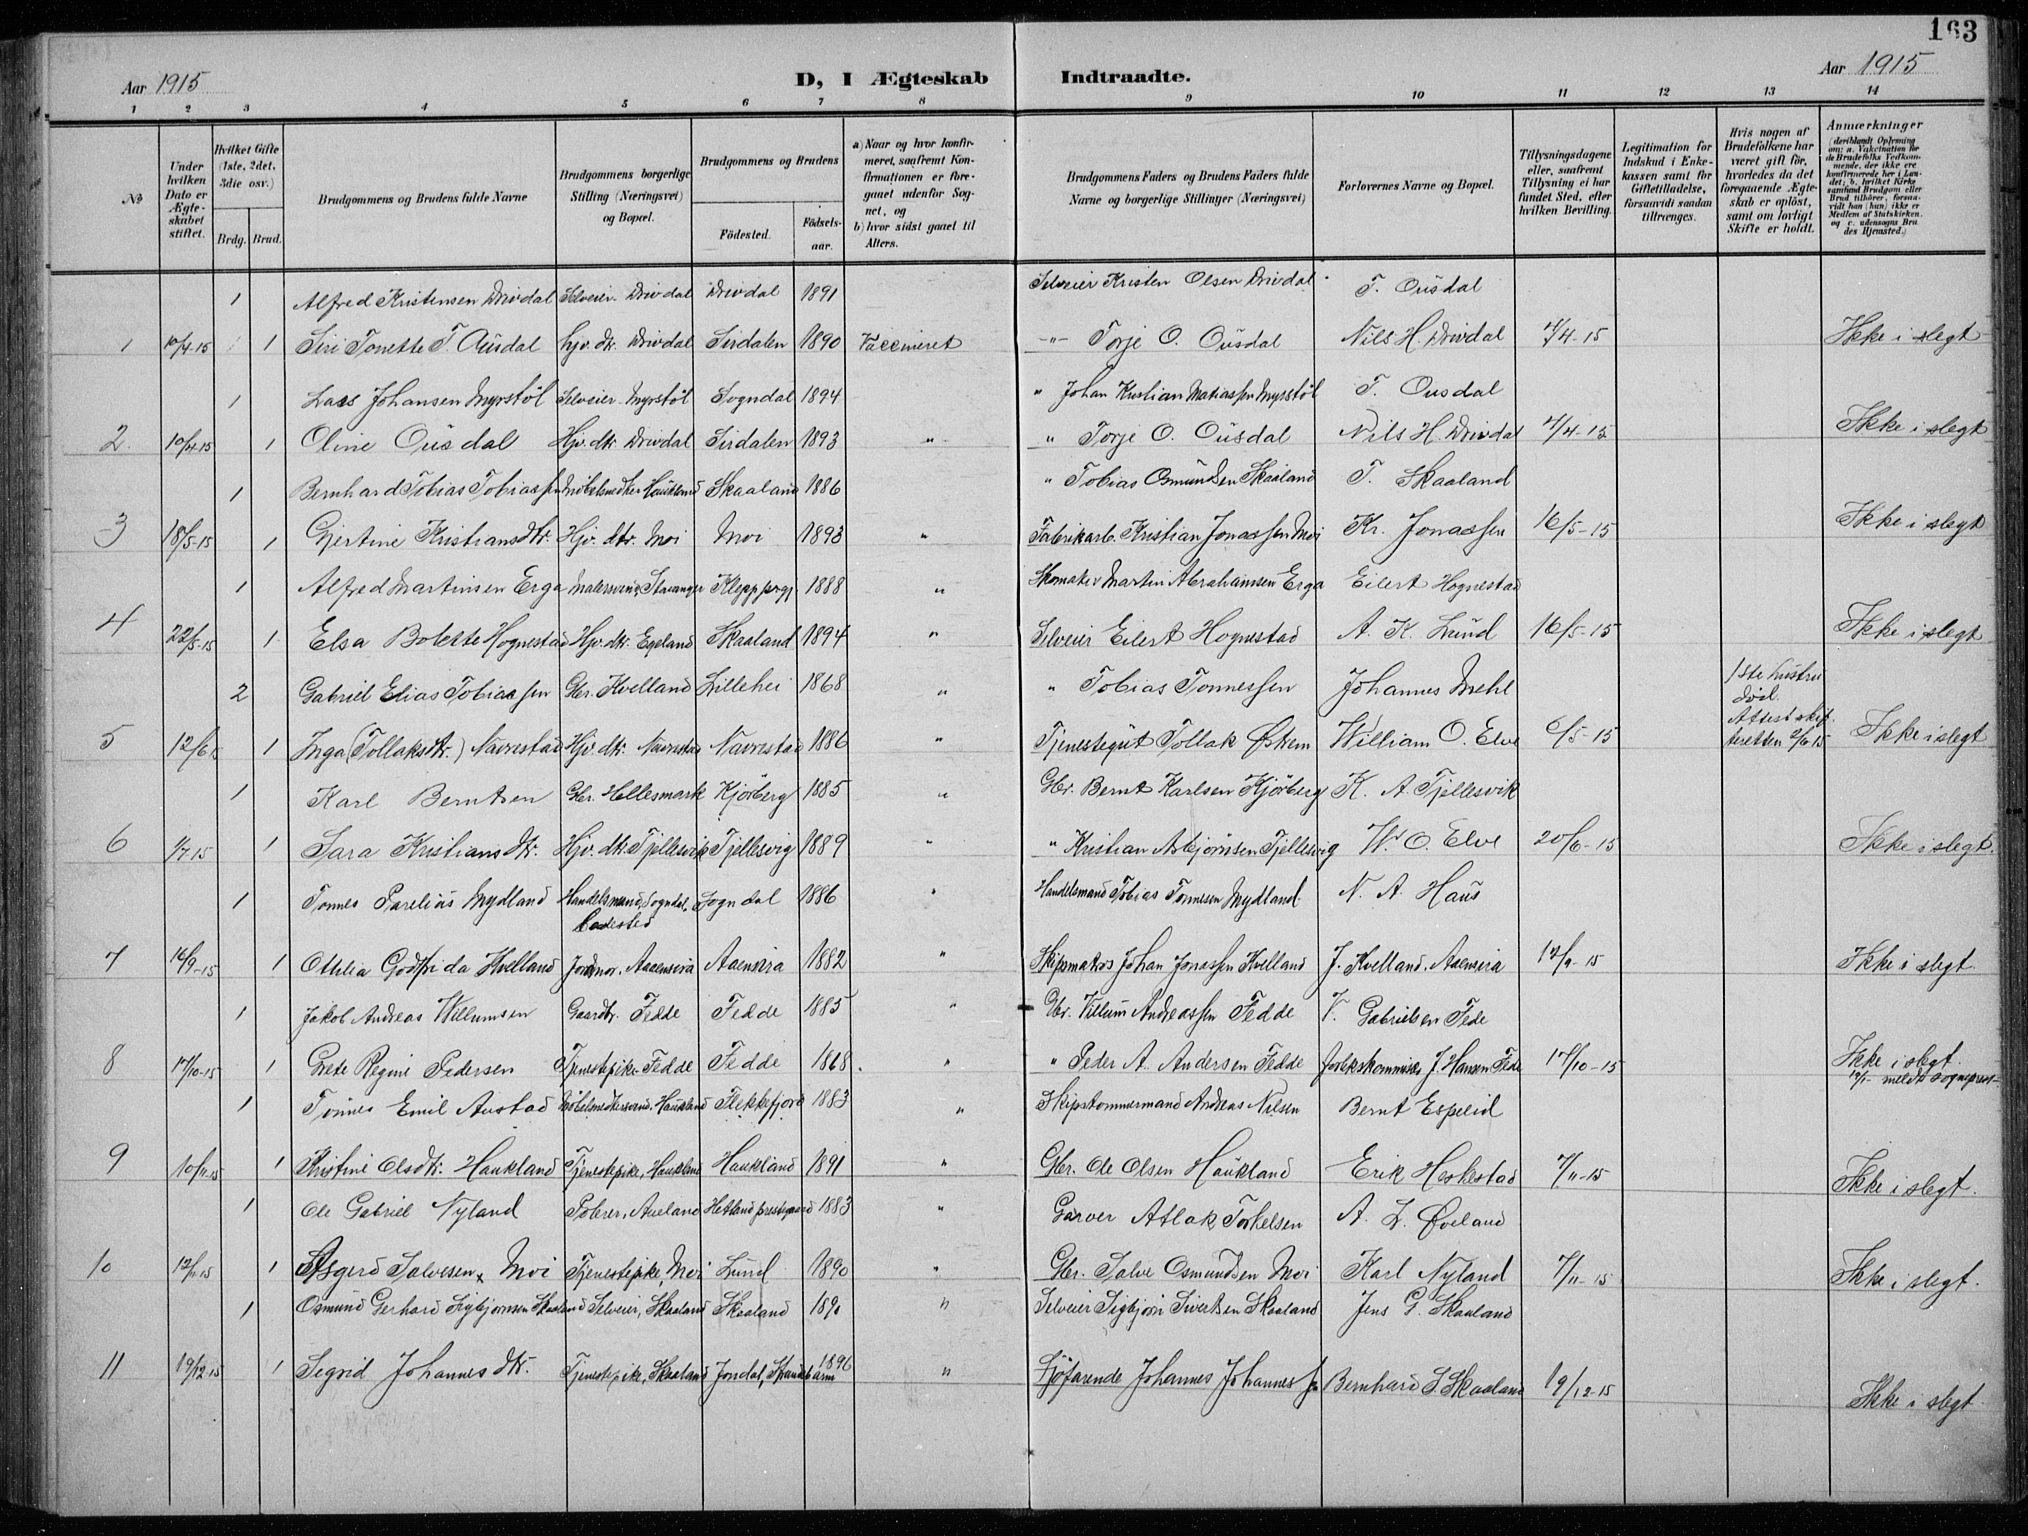 163
Aar 1915
D, I Ægteskab Indtraadte.
Aar 1915
1 2 3 4 5 6 7 8 9 10 11 12 13 14
№
Under hvilken Dato er Ægteskabet stiftet.
Hvilket Gifte (1ste, 2det, 3die osv.)
Brdg. Brud.
Brudgommens og Brudens fulde Navne
Brudgommens borgerlige Stilling (Næringsvei) og Bopæl.
Brudgommens og Brudens
Födested.
Födselsaar.
a) Naar og hvor konfirmeret, saafremt Konfirmationen er foregaaet udenfor Sognet, og
b) hvor sidst gaaet til Alters.
Brudgommens Faders og Brudens Faders fulde Navne og borgerlige Stillinger (Næringsvei)
Forlovernes Navne og Bopæl.
Tillysningsdagene eller, saafremt Tillysning ei har fundet Sted, efter hvilken Bevilling.
Legitimation for Indskud i Enkekassen samt for Giftetilladelse, forsaavidt saadan tiltrænges.
Hvis nogen af Brudefolkene har været gift för, hvorledes da det foregaaende Ægteskab er oplöst, samt om lovligt Skifte er holdt.
Anmærkninger
(deriblandt Oplysning om: a. Vakcination for de Brudefolks Vedkommende, der ikke ere konfirmerede her i Landet; b. hvilket Kirkesamfund Brudgom eller Brud tilhører, forsaavidt han (hun) ikke er Medlem af Statskirken, og c. udensogns Brudes Hjemsted.)
1 Alfred Kristensen Drivdal Selveier Drivdal Drivdal 1891 Selveier Kristen Olsen Drivdal T. Ousdal
1 10/4-15 1 Siri Tonette T. Ousdal hjv. dtr. Drivdal Sirdalen 1890 Vaccineret -"- Torje O. Ousdal Nils H. Drivdal 4/4-15 Ikke i slegt
1 Lars Johansen Myrstöl Selveier Myrstöl Sogndal 1894 " Johan Kristian Matiassen Myrstöl T. Ousdal
2 10/4-15 1 Oline Ousdal Hjv. dtr. Drivdal Sirdalen 1893 " " Torje O. Ousdal Nils H. Drivdal 4/4-15 Ikke i slegt
1 Bernhard Tobias Tobiassen Möbelsnedker Haukland Skaaland 1886 " Tobias Osmundsen Skaaland T. Skaaland
3 18/5-15 1 Gjertine Kristiansdtr. Hjv. dtr. Moi Moi 1893 " Fabrikarb. Kristian Jonassen Moi Kr. Jonassen 16/5-15 Ikke i slegt
1 Alfred Martinsen Erga Malersvend, Stavanger Klepp prgj. 1888 " Skomaker Martin Abrahamsen Erga Eilert Hognestad
4 22/5-15 1 Elsa Bolette Hognestad Hjv. dtr. Egeland Skaaland 1894 " Selveier Eilert Hognestad A. K. Lund 16/5-15 Ikke i slegt
2 Gabriel Elias Tobiassen Gbr. Kvelland Lillehei 1868 " " Tobias Tonnessen Johannes Mehl 1ste hustru död. Attest skifteretten 2/6-15
5 12/6-15 1 Inga (Tollaksdtr.) Navrestad Hjv. dtr. Navrestad Navrestad 1886 " Tjenestegut Tollak Östrem William O. Elve 6/5-15 Ikke i slegt
1 Karl Berntsen Gbr. Hellesmark Kjörberg 1885 " Gbr. Bernt Karlsen Kjörberg K. A. Tjellesvik
6 1/7-15 1 Sara Kristiansdtr. Hjv. dtr. Tjellesvik Tjellesvig 1889 " " Kristian Asbjörnsen Tjellesvig W. O. Elve 20/6-15 Ikke i slegt.
1 Tonnes Parelius Mydland Handelsmand, Sogndal, Ladested Sogndal 1886 " Handelsmand Tobias Tonnesen Mydland N. A. Haus
7 16/9-15 1 Othlia Godtfrida Kvelland Jordmor, Aaensira Aaensira 1882 " Skipsmatros Johan Jonassen Kvelland J. Kvelland, Aaensira 12/9-15 Ikke i slegt
1 Jakob Andreas Willumsen Gaardbr. Fedde Fedde 1885 " Gbr. Villum Andreassen Fedde V. Gabrielsen Fede
8 17/10-15 1 Grete Regine Pedersen Tjenestepike Fedde Fedde 1868 " " Peder A. Andersen Fedde J. Hansen Fede 17/10-15 Ikke i slegt
1 Tönnes Emil Austad Möbelsnedkersvend, Haukland Flekkefjord 1883 " Skipstömmermand Andreas Nilsen Bernt Espelid
9 10/11-15 1 Kristine Olsdtr. Haukland Tjenestepike, Haukland Haukland 1891 " Gbr. Ole Olsen Haukland Erik Heskestad 7/11-15 Ikke i slegt.
1 Ole Gabriel Nyland Hetland prestegjæld 1883 " Garver Atlak Torkelsen A. L. Øveland
10 12/11-15 1 Asgerd Salvesen Moi Tjenestepike, Moi Lund 1890 " Gbr. Salve Osmundsen Moi Karl Nyland 7/11-15 Ikke i slegt.
1 Osmund Gerhard Sigbjörnsen Skaaland Selveier, Skaaland Skaaland 1890 " Selveier Sigbjörn Sivertsen Skaaland Jens G. Skaaland
11 19/12-15 1 Segrid Johannesdtr. Tjenestepike, Skaaland Jondal, Strandebarm 1896 " Sjöfarende Johannes Johannessen Bernhard S. Skaaland 19/12-15 Ikke i slegt